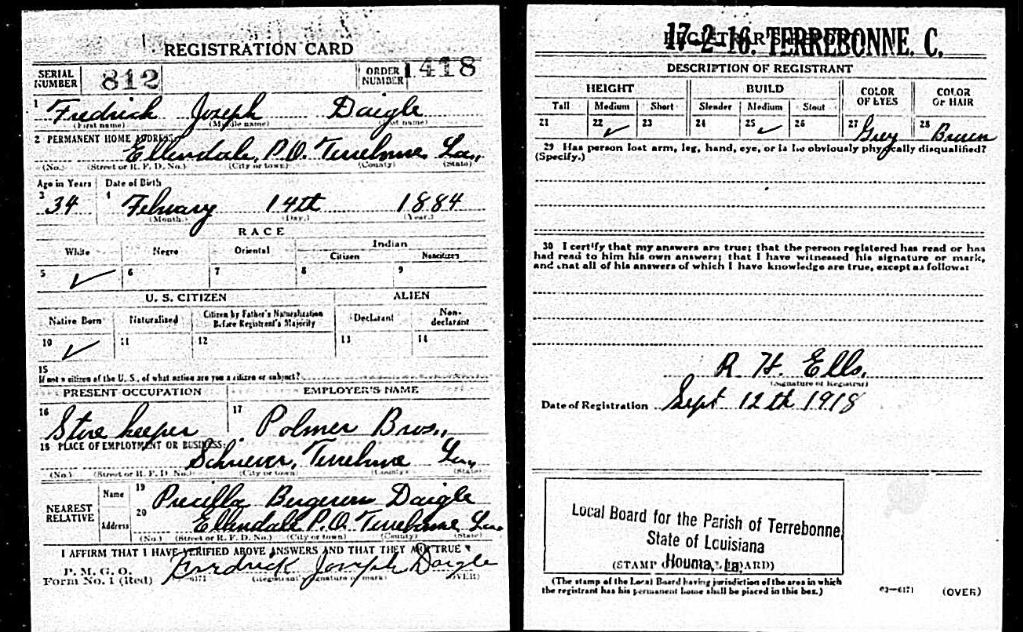 REGISTRATION CARD
SERIAL NUMBER 812 ORDER NUMBER 1418
1 Fredrick Joseph Daigle
(First name) (Middle name) (Last name)
2 PERMANENT HOME ADDRESS:
Ellendale, P.O. Terrebonne La.,
(No.) (Street or R. F. D. No.) (City or town) (County) (State)
Age in Years Date of Birth
3 34 4 February 14th 1884
(Month.) (Day.) (Year.)
RACE
White Negro Oriental Indian
Citizen Noncitizen
5 ✓ 6 7 8 9
U. S. CITIZEN ALIEN
Native Born Naturalized Citizen by Father's Naturalization Before Registrant's Majority Declarant Non-declarant
10 ✓ 11 12 13 14
15
If not a citizen of the U. S., of what nation are you a citizen or subject?
PRESENT OCCUPATION EMPLOYER'S NAME
16 Store keeper 17 Polmer Bros.,
18 PLACE OF EMPLOYMENT OR BUSINESS:
Schriever, Terrebonne La.,
(No.) (Street or R. F. D. No.) (City or town) (County) (State)
NEAREST RELATIVE Name 19 Precilla Bergeron Daigle
Address 20 Ellendale P.O. Terrebonne La.
(No.) (Street or R. F. D. No.) (City or town) (County) (State)
I AFFIRM THAT I HAVE VERIFIED ABOVE ANSWERS AND THAT THEY ARE TRUE
P. M. G. O.
Form No. 1 (Red) Fredrick Joseph Daigle
(Registrant's signature or mark) (OVER)
17-2-16. TERREBONNE. C.
REGISTRAR'S REPORT
DESCRIPTION OF REGISTRANT
HEIGHT BUILD COLOR OF EYES COLOR OF HAIR
Tall Medium Short Slender Medium Stout
21 22 ✓ 23 24 25 ✓ 26 27 Grey 28 Brown
29 Has person lost arm, leg, hand, eye, or is he obviously physically disqualified?
(Specify.)
30 I certify that my answers are true; that the person registered has read or has
had read to him his own answers; that I have witnessed his signature or mark,
and that all of his answers of which I have knowledge are true, except as follows:
R. H. Ells.
(Signature of Registrar)
Date of Registration Sept 12th 1918
Local Board for the Parish of Terrebonne,
State of Louisiana
Houma, La.
(STAMP OF LOCAL BOARD)
(The stamp of the Local Board having jurisdiction of the area in which
the registrant has his permanent home shall be placed in this box.)
03-6171 (OVER)